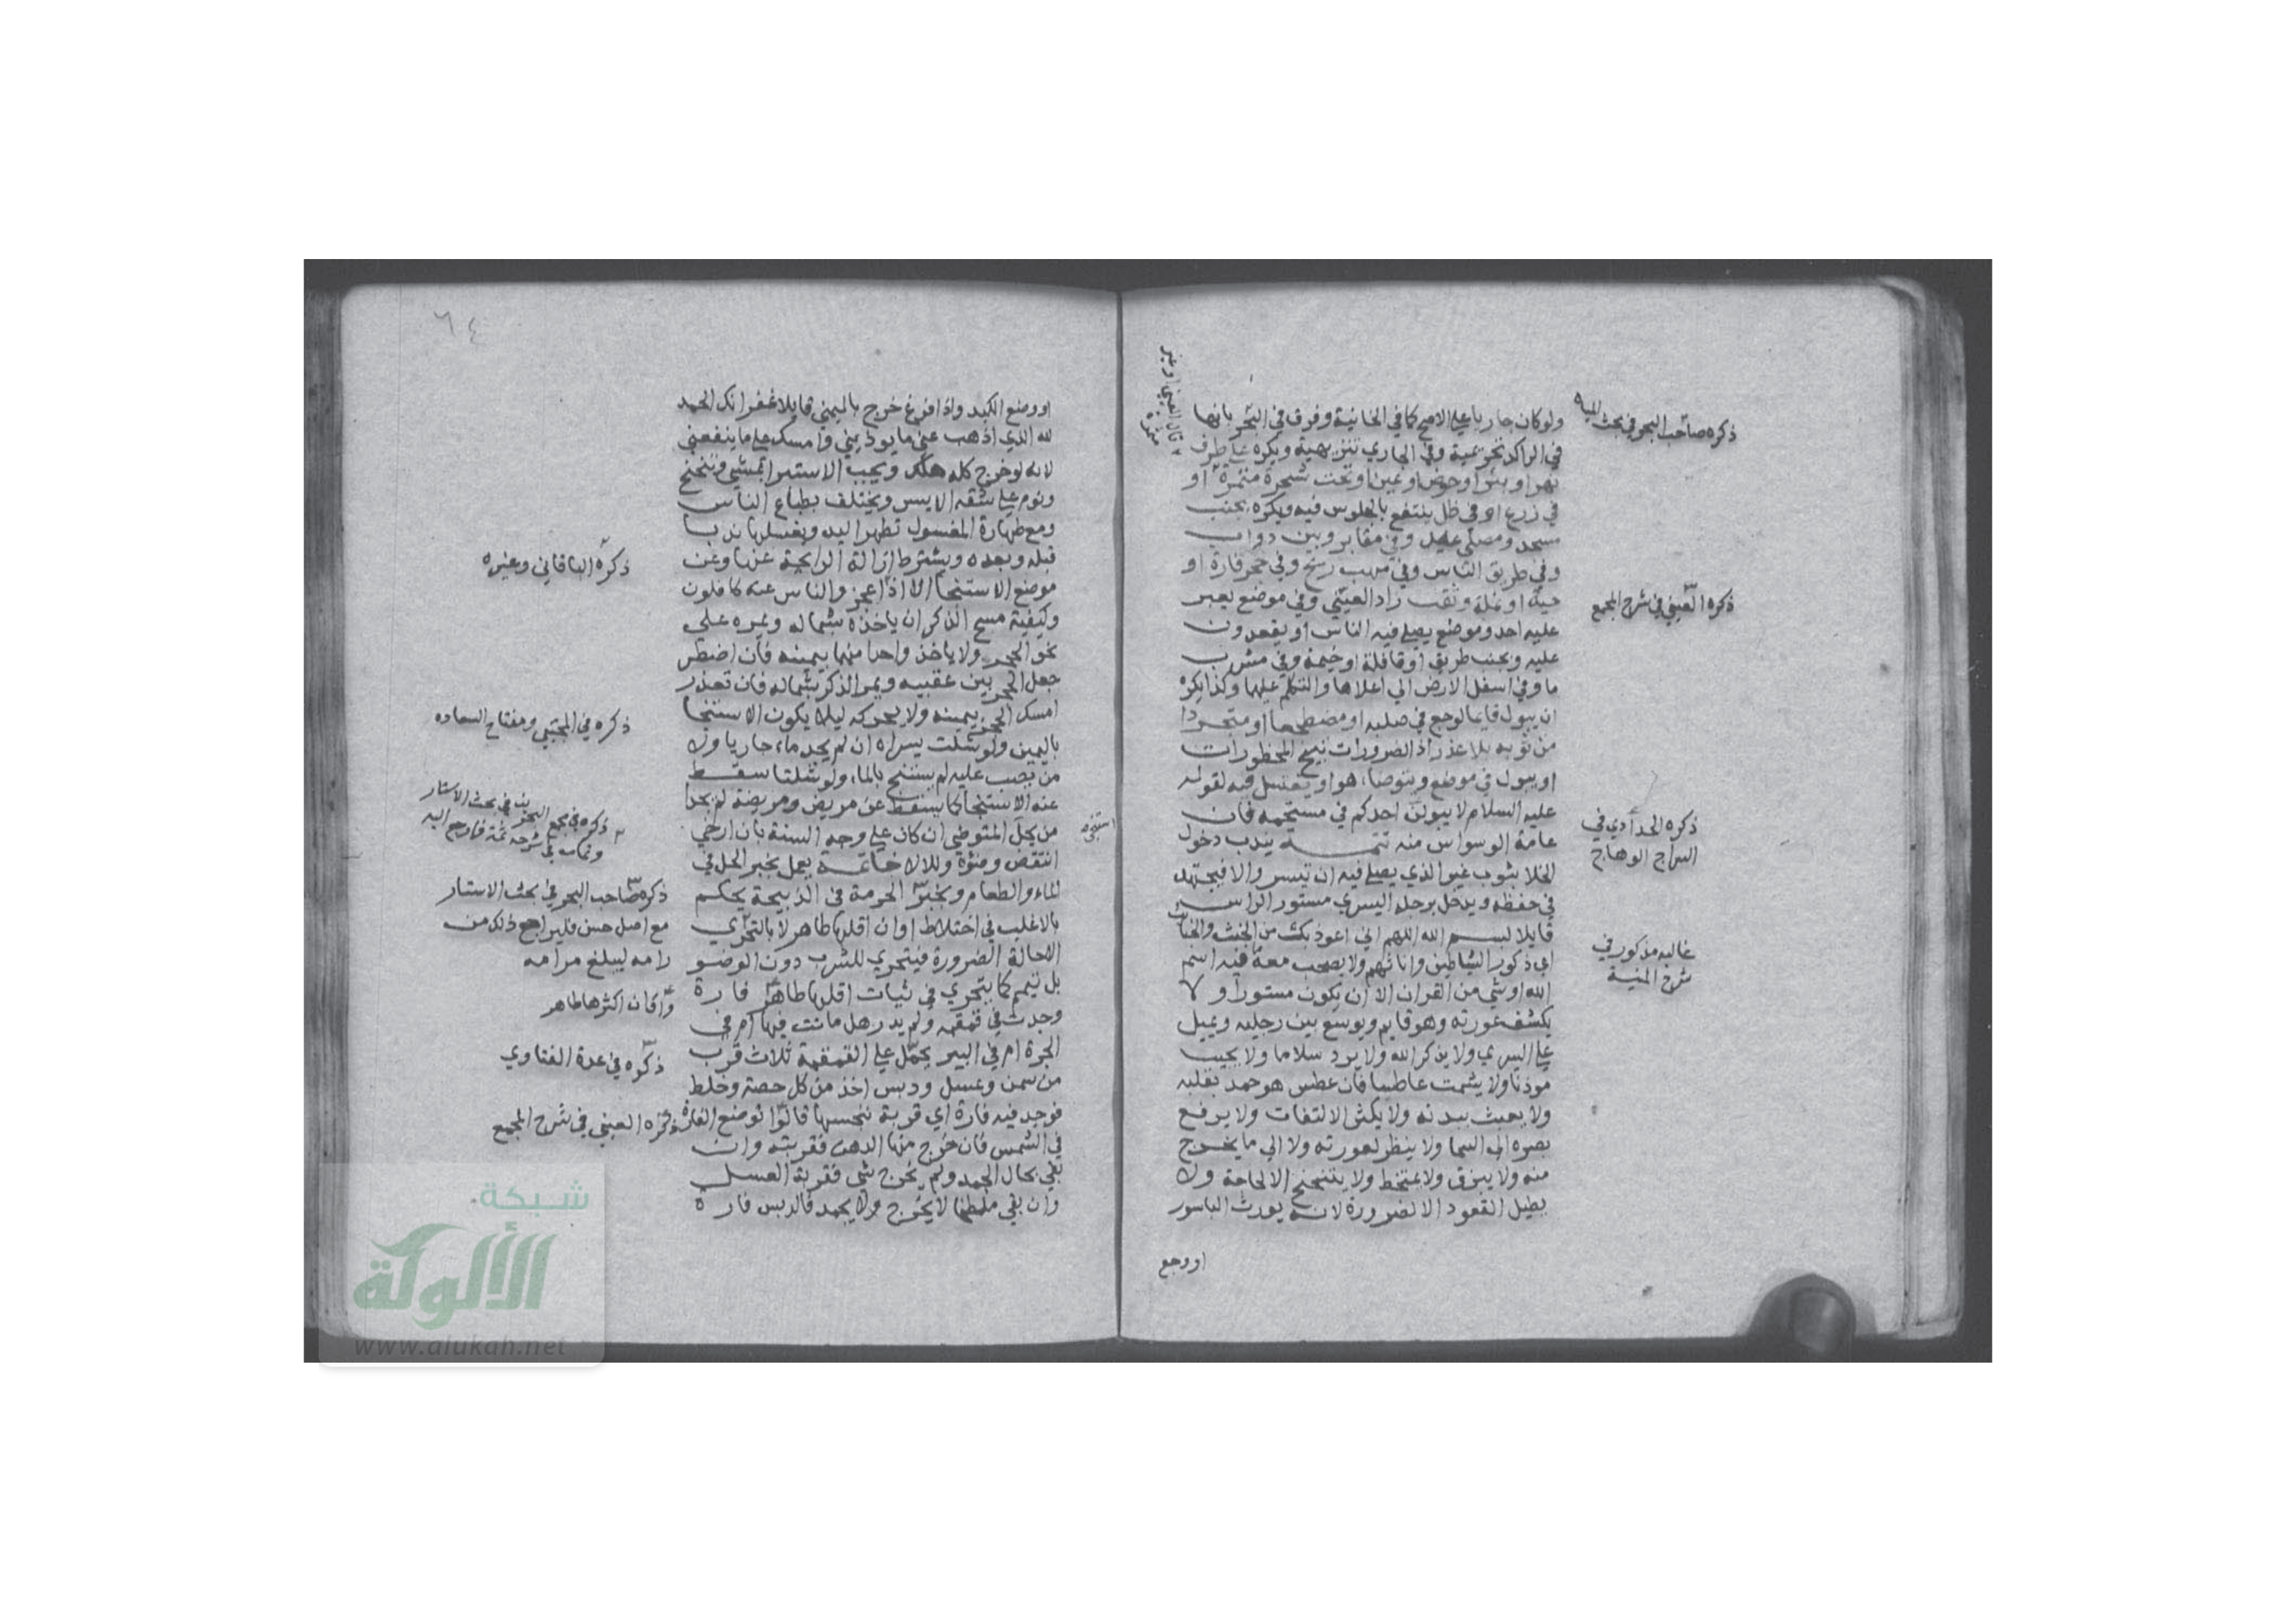 ولو كان جاريا علي الاصح كما في الخانية وفرق في البحر بانها
في الراكد تحريمية وفي الجاري تنزيهية ويكره علي طرف
نهر او بئر او حوض او عين او تحت شجرة مثمرة او
في زرع او في ظل ينتفع بالجلوس فيه ويكره بجنب
مسجد ومصلي عيد وفي مقابر وبين دواب
وفي طريق الناس وفي مهب ريح وفي جحر فارة او
حية او نملة وثقب زاد العيني وفي موضع يعبر
عليه احد وموضع يصلي فيه الناس او يقعدون
عليه وبجنب طريق او قافلة او خيمة وفي مشرب
ما وفي اسفل الارض الي اعلاها والتكلم عليها وكذا يكره
ان يبول قايما لوجع في صلبه او مضطجعا او متجردا
من ثوبه بلا عذر اذ الضرورات تبيح المحظورات
او يبول في موضع ويتوضا هو او يغتسل فيه لقوله
عليه السلام لا يبولن احدكم في مستحمه فان
عامة الوسواس منه تتمـــة يندب دخول
الخلا بثوب غير الذي يصلي فيه ان تيسر والا فيجتهد
في حفظه ويدخل برجله اليسري مستور الراس
قايلا بسم الله اللهم اني اعوذ بك من الخبث والخبائث
اي ذكور الشياطين واناثهم ولا يصحب معه فيه اسم
الله او شي من القران الا ان يكون مستورا ولا
يكشف عورته وهو قايم ويوسع بين رجليه ويميل
علي اليسري ولا يذكر الله ولا يرد سلاما ولا يجيب
موذنا ولا يشمت عاطسا فان عطس هو حمد بقلبه
ولا يعبث ببدنه ولا يكثر الالتفات ولا يرفع
بصره الي السما ولا ينظر لعورته ولا الي ما يخرج
منه ولا يبزق ولا يمتخط ولا يتنحنح الا لحاجة ولا
يطيل القعود الا لضرورة لانه يورث الباسور
او وجع
ذكره صاحب البحر في بحث المياه
قال العيني او غير
مثمرة
ذكره العيني في شرح المجمع
ذكره الحدادي في
السراج الوهاج
غالبه مذكور في
شرح المنية
٦٤
او وضع الكبد واذا فرغ خرج باليمني قايلا غفرانك الحمد
لله الذي اذهب عني ما يوذيني وامسك علي ما ينفعني
لانه لو خرج كله هلك ويجب الاستبرا بمشي وتنحنح
ونوم علي شقه الايسر ويختلف بطباع الناس
ومع طهارة المغسول تطهر اليد ويغسلها ندبا
قبله وبعده ويشترط ازالة الرايحة عنها وعن
موضع الاستنجا الا اذا عجز والناس عنه غافلون
وكيفية مسح الذكر ان ياخذه بشماله ويمره علي
نحو الحجر ولا ياخذ واحدا منهما بيمينه فان اضطر
جعل الحجر بين عقبيه ويمر الذكر بشماله فان تعذر
امسك الحجر بيمينه ولا يحركه ليلا يكون الاستنجا
باليمين ولو شلت يسراه ان لم يجد ماء جاريا ولا
من يصب عليه لم يستنج بالماء ولو شلتا سقط
عنه الاستنجا كما يسقط عن مريض ومريضة لم يجدا
من يحل المتوضي ان كان علي وجه السنة بان ارخي
انتقض وضوءه والا لا خاتمـــة يعمل بخبر الحل في
الماء والطعام وبخبر الحرمة في الذبيحة يحكم
بالاغلب في اختلاط اوان اقلها طاهر لا بالتحري
الا حالة الضرورة فيتحري للشرب دون الوضو
بل تيمم كما يتحري في ثياب اقلها طاهر فارة
وجدت في قمقمه ولم يدر هل ماتت فيها ام في
الجرة ام في البير يحمل علي القمقمة ثلاث قرب
من سمن وعسل ودبس اخذ من كل حصة وخلط
فوجد فيه فارة اي قربة ننجسها قالوا توضع الفارة
في الشمس فان خرج منها الدهن فقربته وان
بقي بحال الجمد ولم يخرج شي فقربة العسل
وان بقي ملطخا لا يخرج ولا يجمد فالدبس فارة
استنجي
ذكره الباقاني وغيره
ذكره في المجتبي ومفتاح السعاده
ذكره في مجمع البحرين في بحث الاسار
وتمامه في شرحه ثمة فارجع اليه
ذكره صاحب البحر في بحث الاسار
مع اصل حسن فليراجع ذلك من
رامه ليبلغ مرامه
وان كان اكثرها طاهر
ذكره في عدة الفتاوي
ذكره العيني في شرح المجمع
شبكة
الألوكة
www.alukah.net